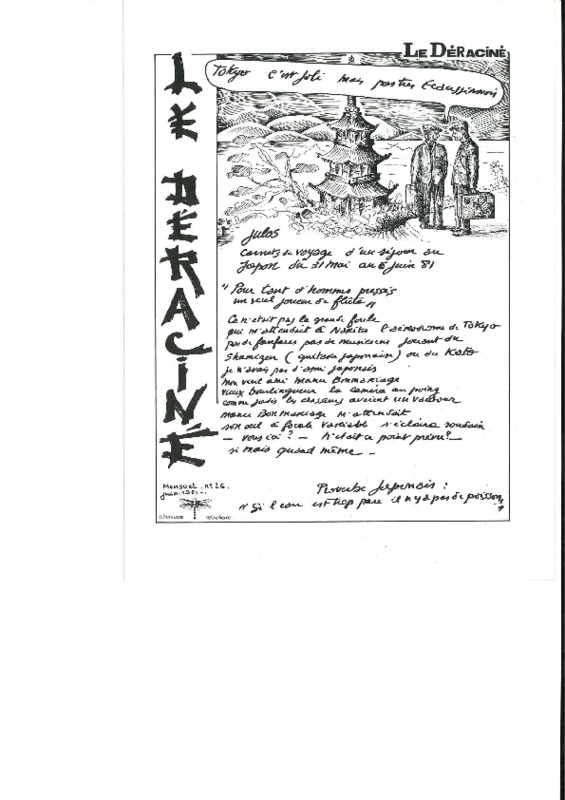 LE DÉRACINÉ
Tokyo c'est joli mais pas très Ecaussinnois
LE DÉRACINÉ
Julos
Carnets de voyage d'un séjour au
Japon du 31 mai au 6 juin 81
"Pour tant d'hommes pressés
un seul joueur de flûte"
Ce n'était pas la grande foule
qui m'attendait à Narita l'aérodrome de Tokyo
pas de fanfares pas de musiciens jouant du
Shamizen (guitare japonaise) ou du Koto
je n'avais pas d'ami japonais
mon seul ami Manu Bonmariage
vieux bourlingueur la caméra au poing
comme jadis les chasseurs avaient un vautour
Manu Bonmariage m'attendait
son oeil à focale variable s'éclaira soudain
– vous ici ? – n'était-ce point prévu ?
si mais quand même –
Proverbe Japonais :
"Si l'eau est trop pure il n'y a pas de poisson"
Mensuel. n°26.
juin. 1981.
libellule